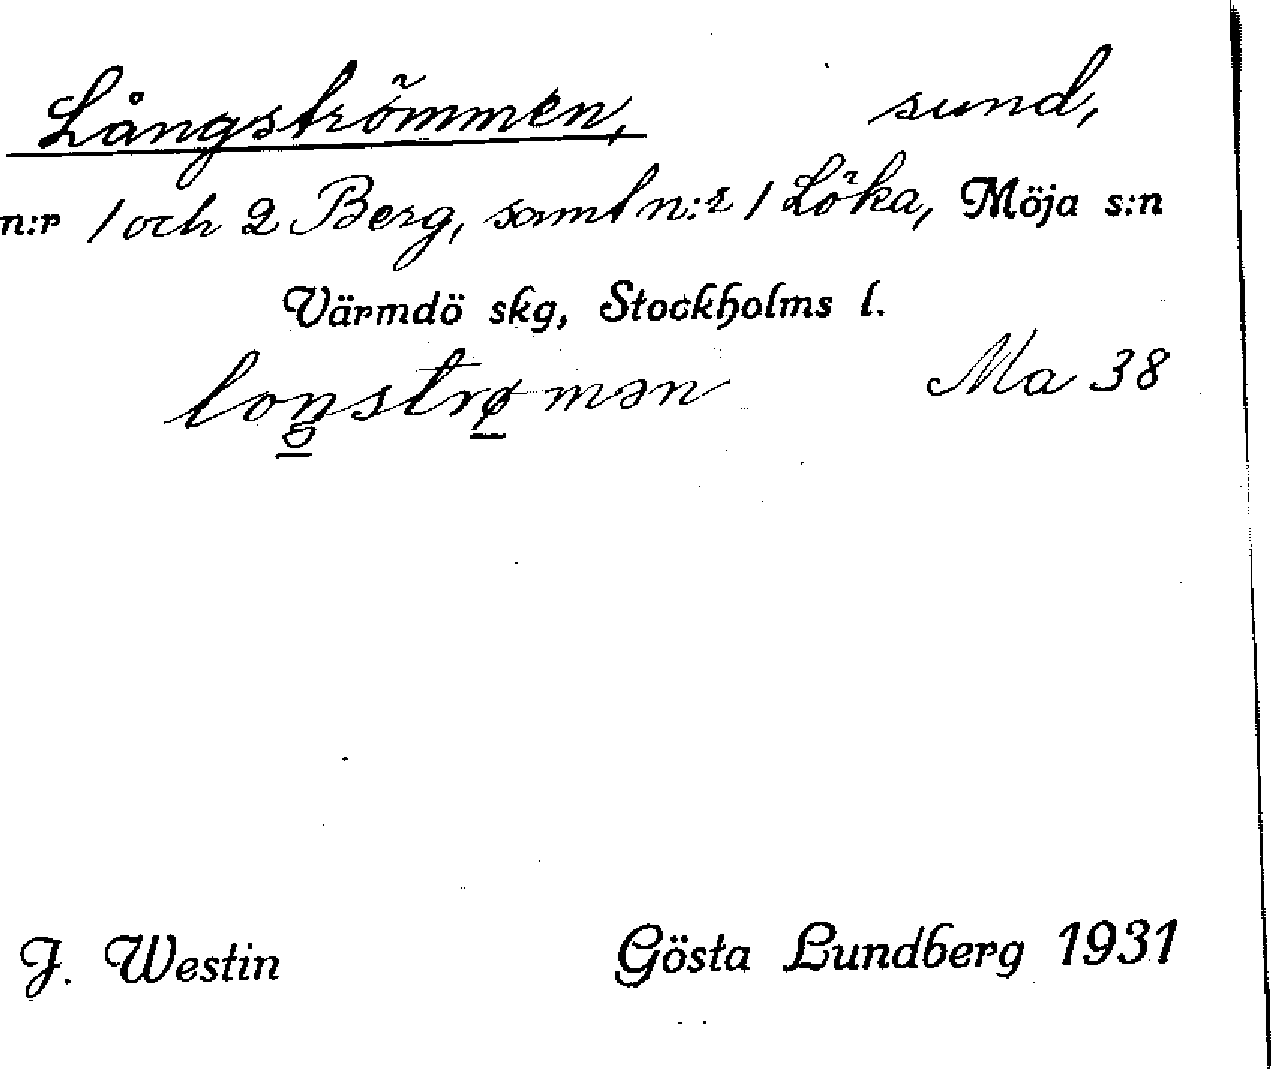 Långströmmen, sund,
n:r 1 och 2 Berg, samt n:r 1 Löka, Möja s:n
Värmdö skg, Stockholms l.
Ma 38
J. Westin Gösta Lundberg 1931